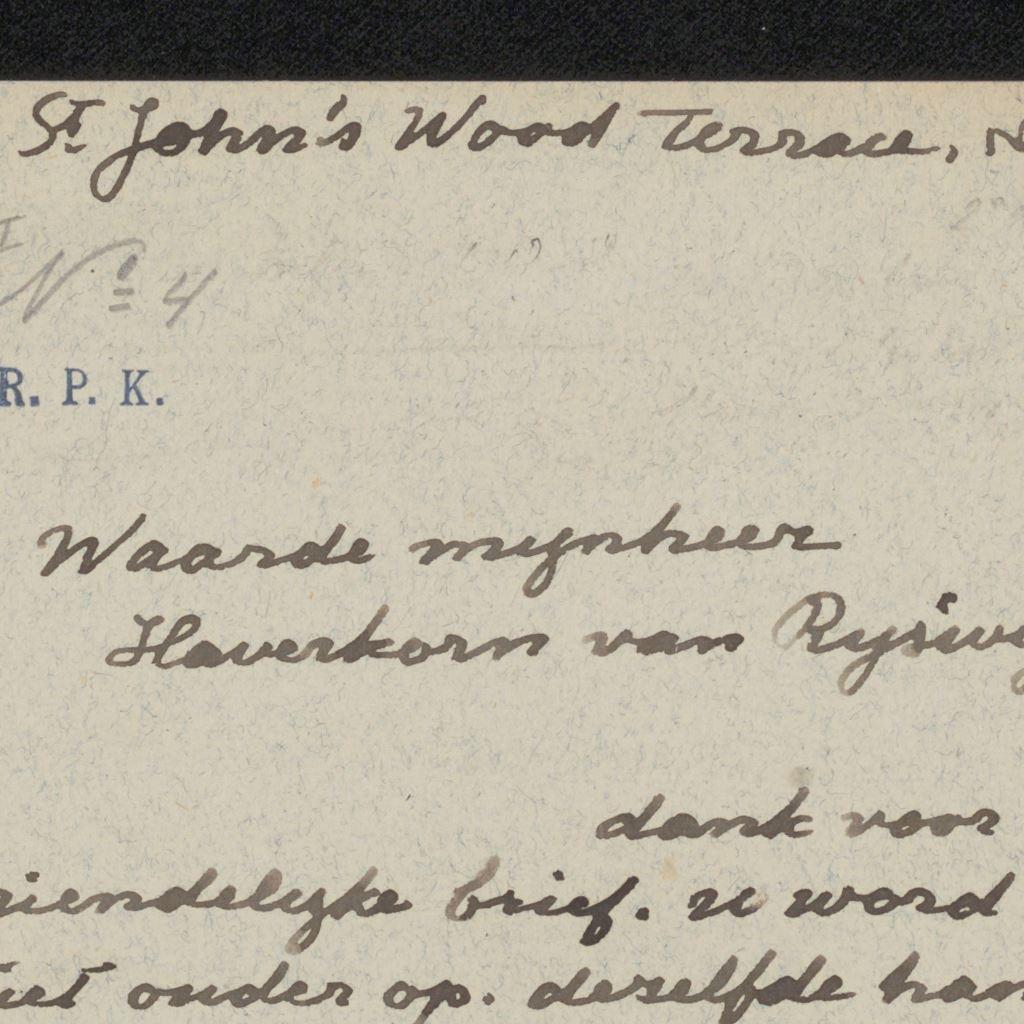 St John's Wood Terrace, N
No 4
R. P. K.
Waarde mynheer
Haverkorn van Ryswy
dank voor
riendelyke brief. u word
niet ouder op. deselfde han